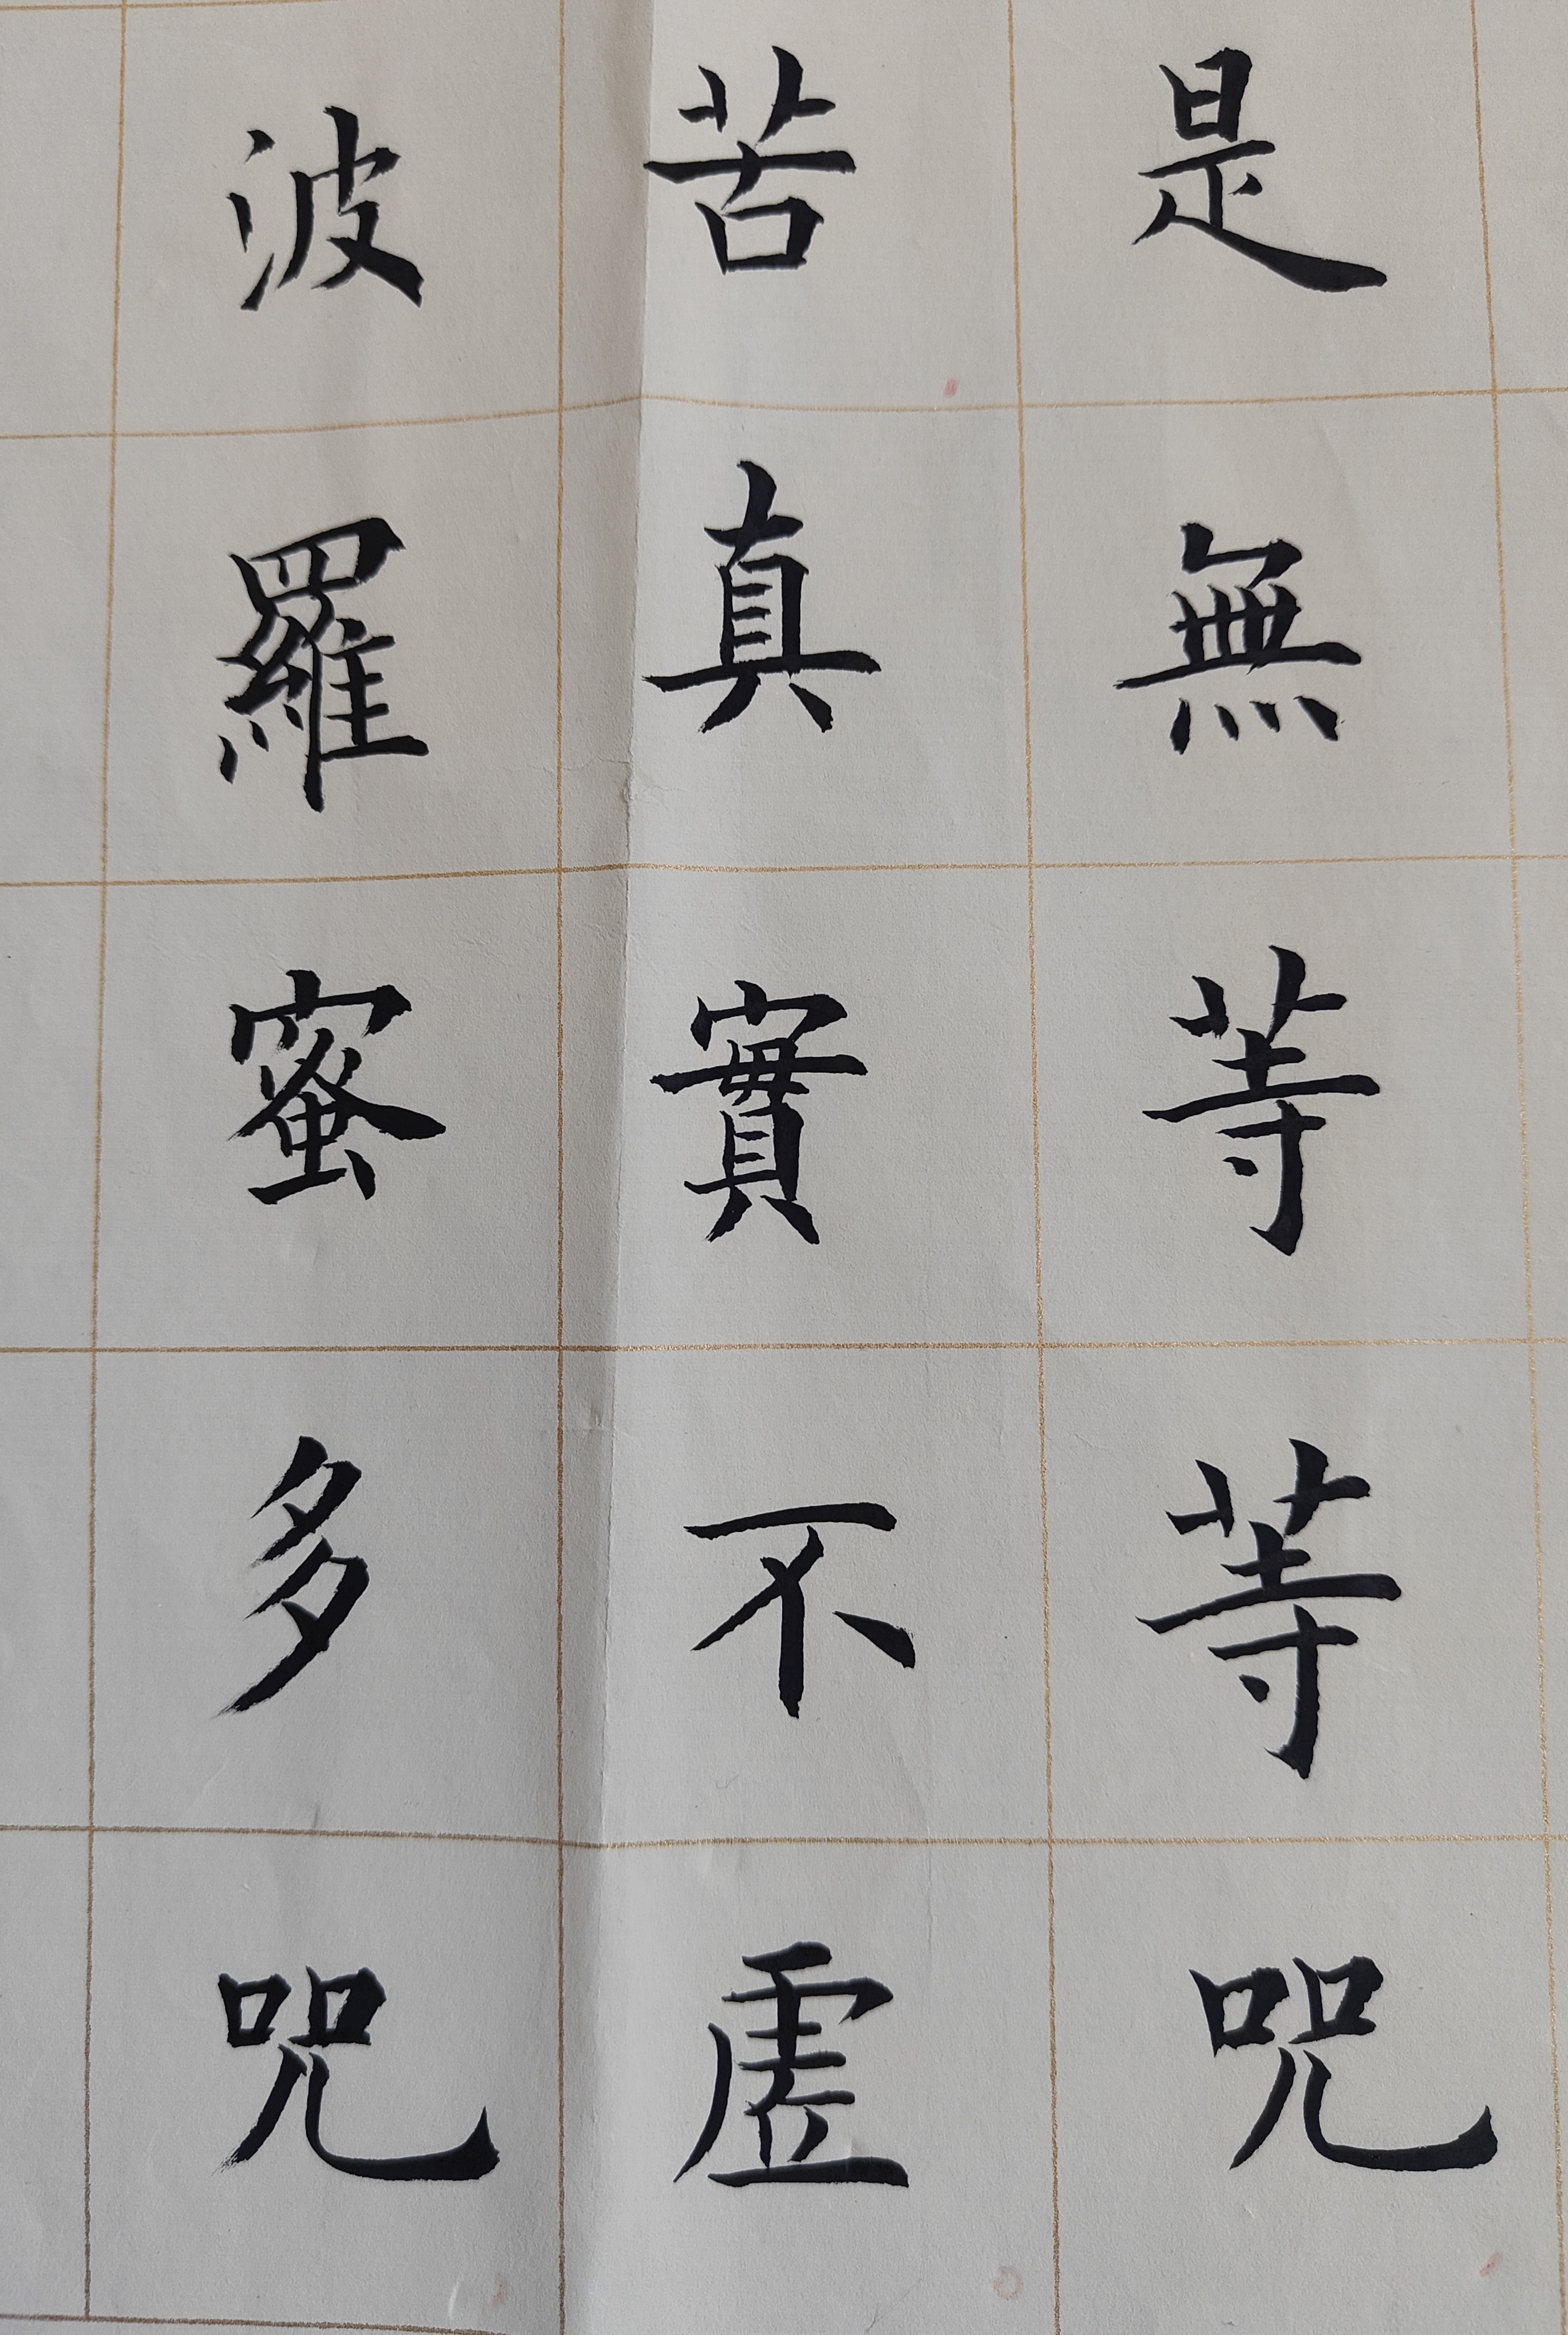 是無等等咒
苦真實不虛
波羅蜜多咒